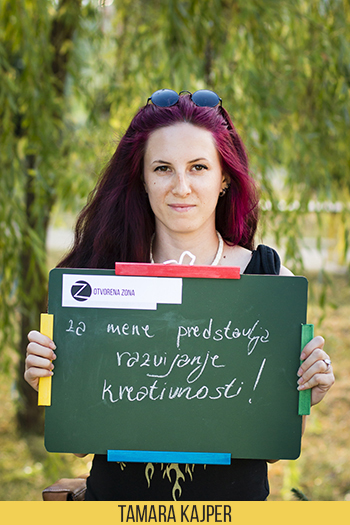 OTVORENA ZONA
za mene predstavlja
razvijanje
kreativnosti!
TAMARA KAJPER